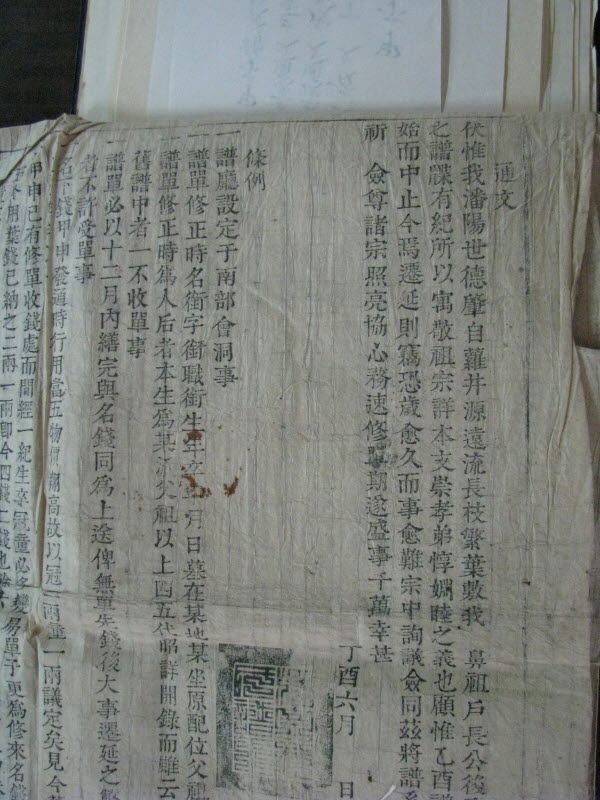 通文
伏惟我潘陽世德肇自蘿井源遠流長枝繁葉敷我 鼻祖戶長公後
之譜牒有紀所以寓敬祖宗詳本支崇孝弟惇婣睦之義也顧惟乙酉譜
始而中止今焉遷延則竊恐歲愈久而事愈難宗中詢議僉同玆將譜
祈 僉尊諸宗照亮協心務速修 期遂盛事千萬幸甚
丁酉六月 日
條例
一譜廳設定于南部會洞事
一譜單修正時名銜字銜職銜生年卒 月日墓在某地某坐原配位父祖
一譜單修正時爲人后者本生爲某 父祖以上四五代昭詳開錄而雖云
舊譜中者一不收單事
一譜單必以十二月內繕完與名錢同爲上送俾無單先錢後大事遷延之
者不許受單事
名下錢甲申發通時行用當五物價翔高故以冠二兩童一兩議定矣見今
甲申已有修單收錢處而間經一紀生卒冠童必多變易單子更爲修來名錢
今用葉錢已納之二兩一兩卽今四錢二錢也